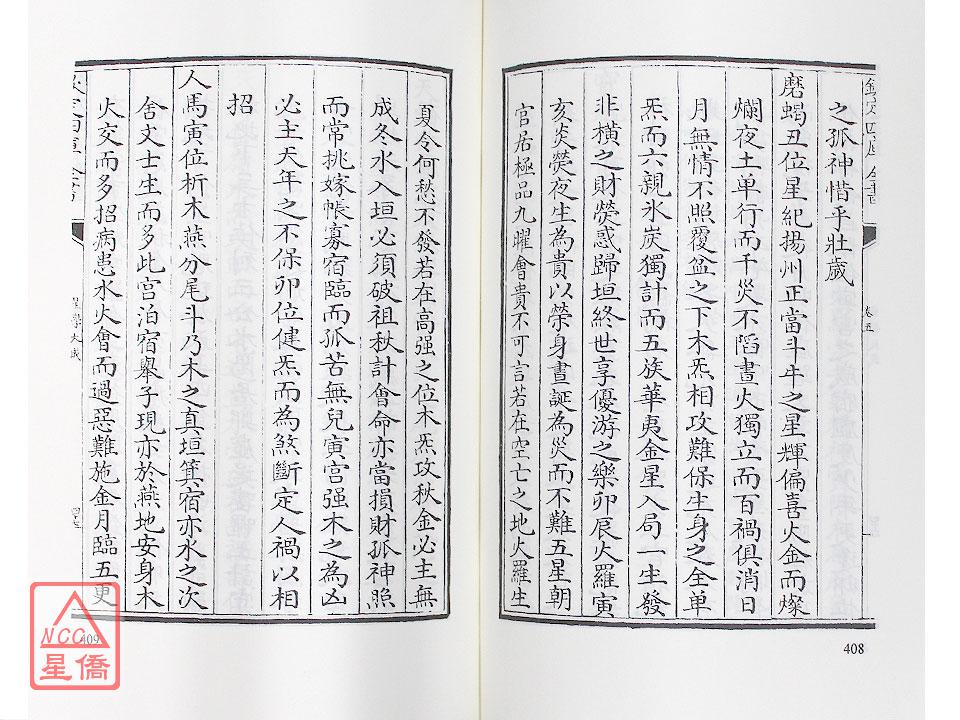 之孤神惜乎壯歲
磨蝎丑位星紀揚州正當斗牛之星輝偏喜火金而燦
爛夜土单行而千災不䧟晝火獨立而百禍俱消日
月無情不照覆盆之下木炁相攻難保生身之全单
炁而六親氷炭獨計而五族華夷金星入局一生發
非横之財熒惑歸垣終世享優游之樂卯辰火羅寅
亥炎熒夜生為貴以榮身晝誕為災而不難五星朝
官居極品九曜會貴不可言若在空亡之地火羅生
卷五
408
夏令何愁不發若在高强之位木炁攻秋金必主無
成冬水入垣必須破祖秋計會命亦當損財孤神照
而常挑嫁帳寡宿臨而孤苦無兒寅宫强木之為凶
必主夭年之不保卯位健炁而為煞斷定人禍以相
招
人馬寅位析木燕分尾斗乃木之真垣箕宿亦水之次
舍文士生而多此宫泊宿舉子現亦於燕地安身木
火交而多招病患水火會而過惡難施金月臨五更
星學大成
409
NCC
星僑